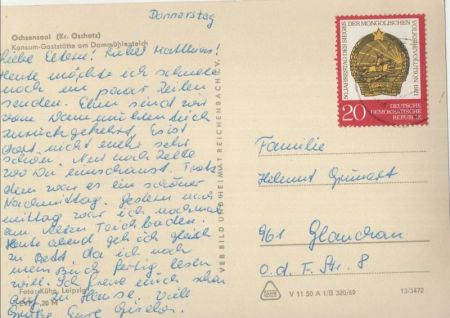 Donnerstag
Ochsensaal (Kr. Oschatz)
Konsum-Gaststätte am Dammühlenteich
Liebe Eltern! Lieber Matthias!
Heute möchte ich schnell
noch ein paar Zeilen
senden. Eben sind wir
vom Dammühlenteich
zurückgekehrt. Es ist
dort nicht mehr sehr
schön. Nur noch Zelte
wo Du hinschaust. Trotz-
dem war es ein schöner
Nachmittag. Gestern nach-
mittag war ich nochmal
am Teich baden.
Heute abend geh ich gleich
zu Bett, da ich noch
mein Buch fertig lesen
will. Ich freue mich schon
auf zu Hause. Viele
Grüße Eure
Foto: Kühn, Leipzig
EVP: 20 Pf
VEB BILD UND HEIMAT REICHENBACH i. V.
50. JAHRESTAG DES SIEGES DER MONGOLISCHEN VOLKSREVOLUTION 1921
20
DEUTSCHE
DEMOKRATISCHE
REPUBLIK
Familie
Helmut
961 Glauchau
O.d.F. Str. 8
V 11 50 A 1/B 320/69
13/3472